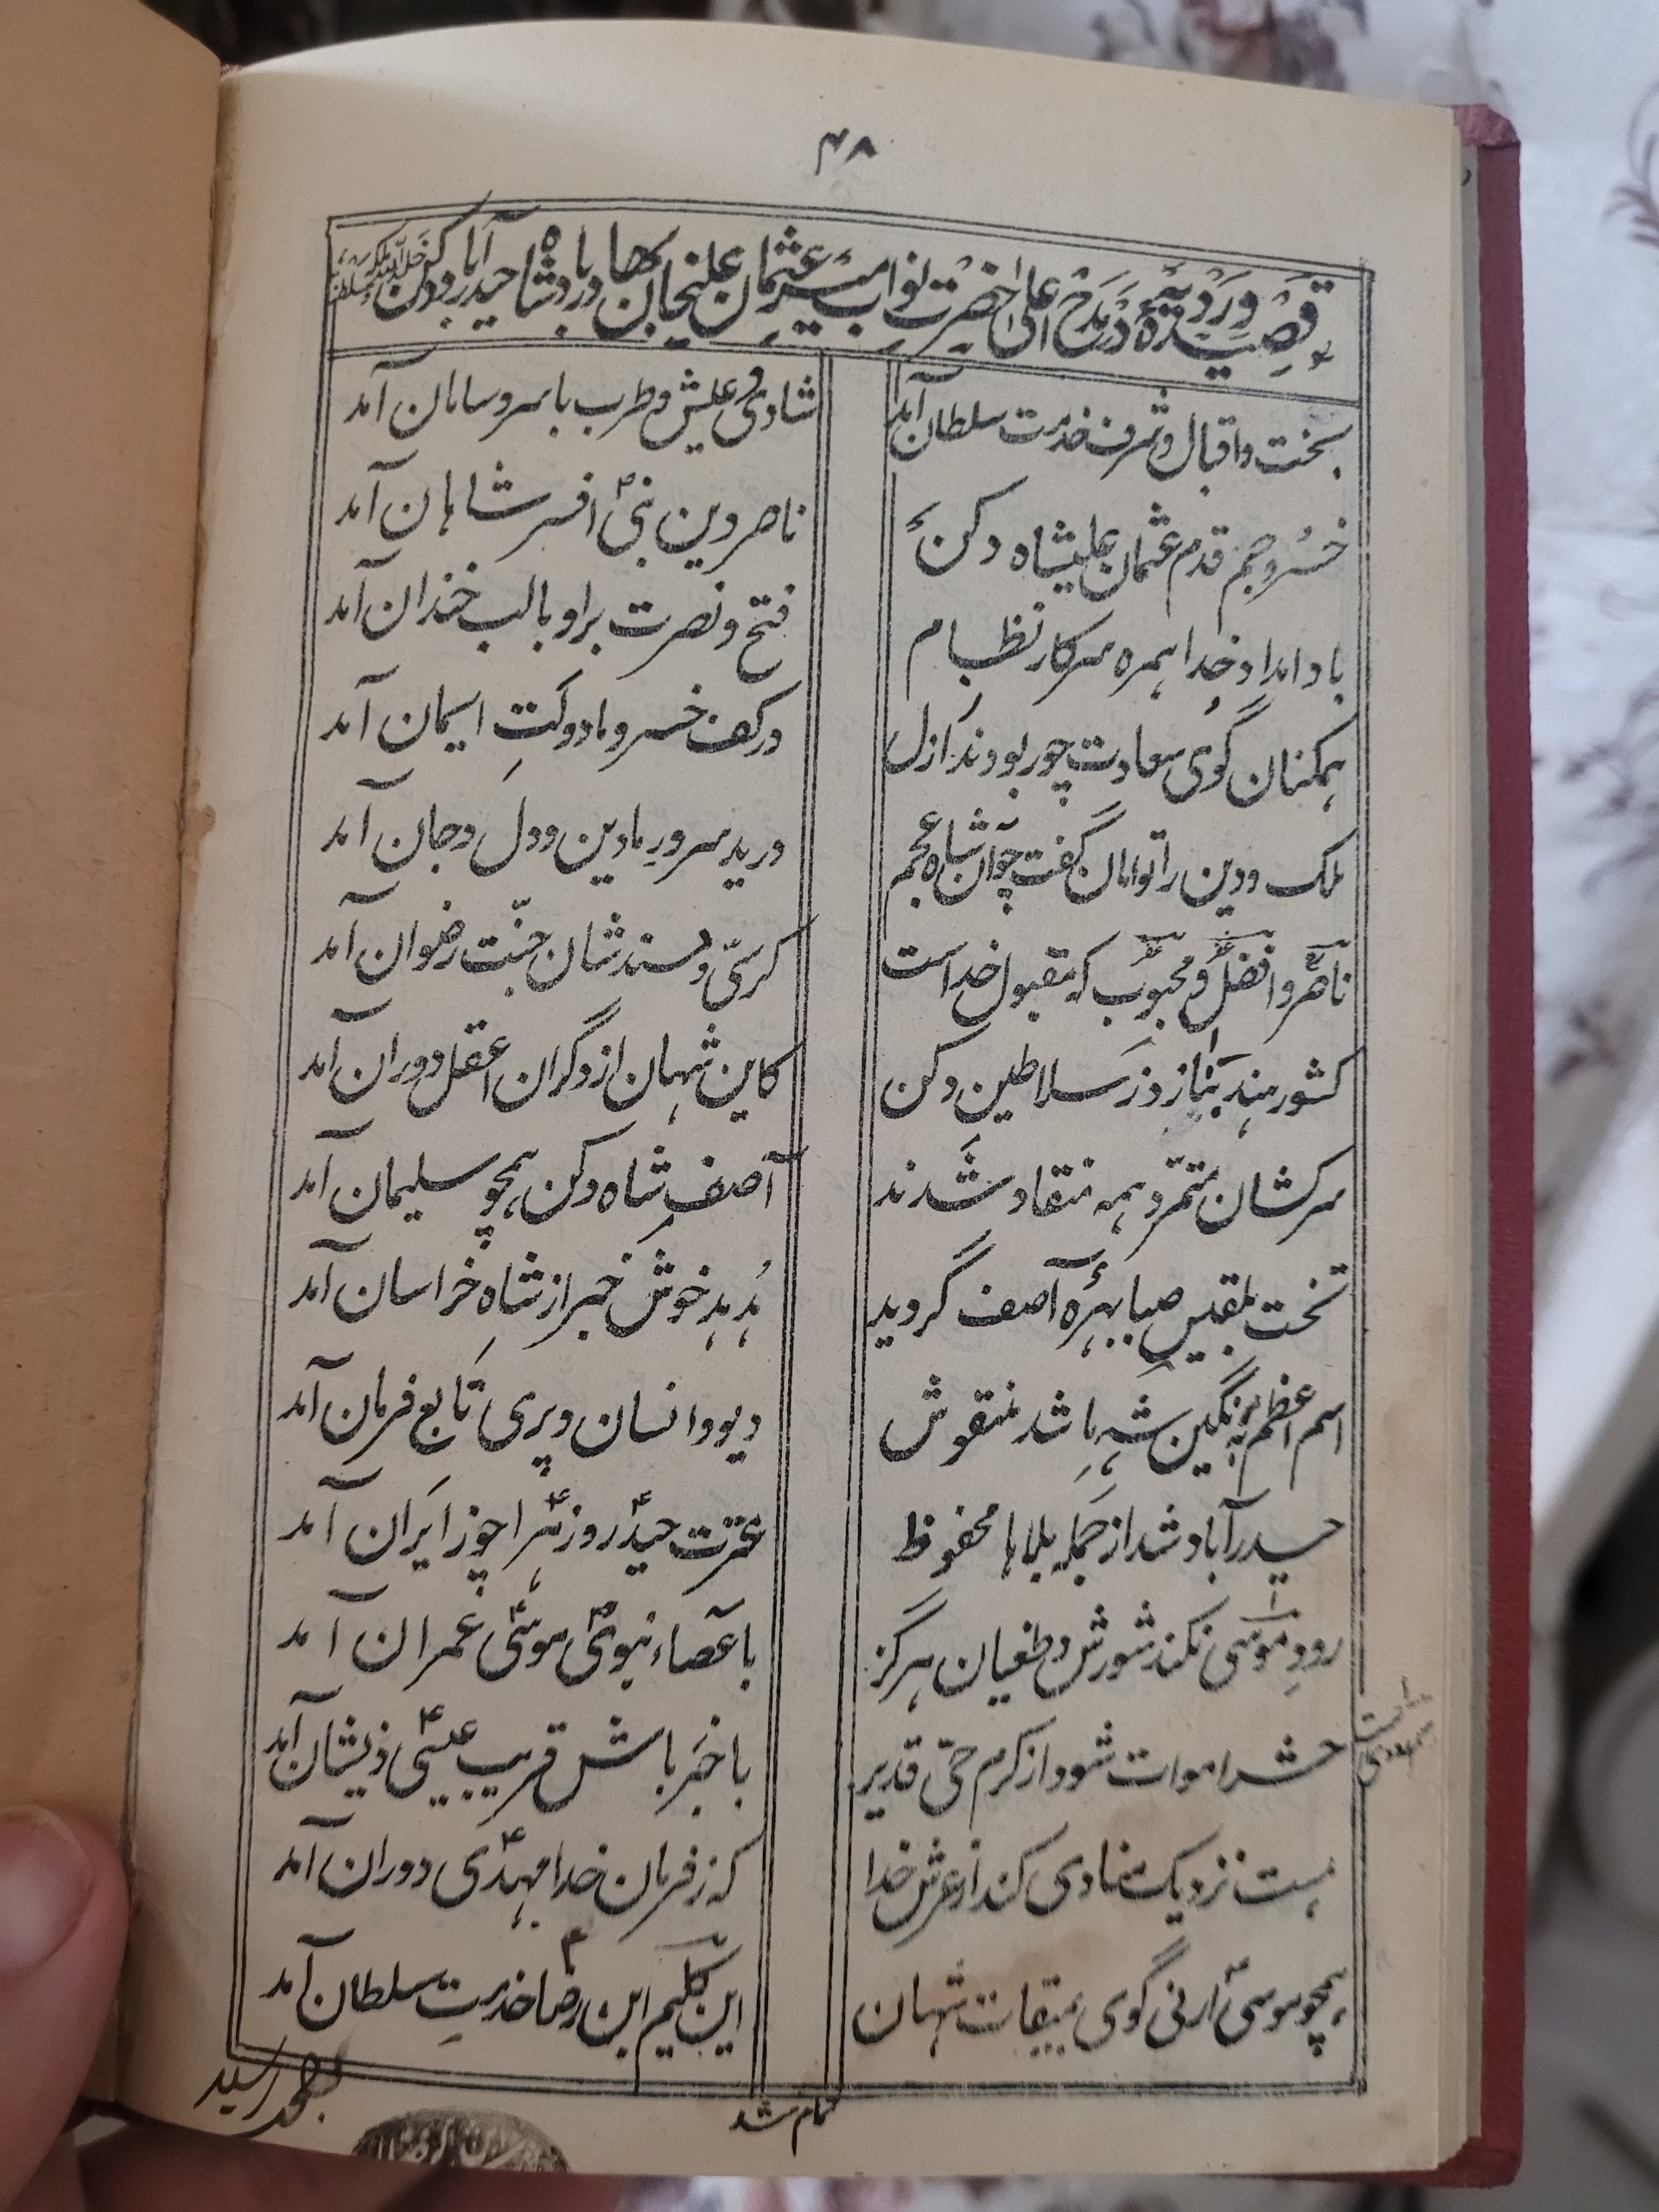 ۴۸
قصیدهٔ ورودیهٔ در مدح اعلیٰ حضرت نواب میر عثمان علیخان بهادر بادشاه حیدرآباد دکن خلد الله ملکه و سلطنته
بخت و اقبال و شرف خدمت سلطان آمد
شادی و عیش و طرب با سر و سامان آمد
خسرو جم قدم عثمان علیشاه دکن
ناصر دین نبیؐ افسر شاهان آمد
باد امداد خدا همره سرکار نظام
فتح و نصرت بر او با لب خندان آمد
همکنان گوی سعادت چو ربودند ز ازل
در کف خسرو ما دولتِ ایمان آمد
ملک و دین را توامان گفت چو آن شاه عجم
در ید سرورِ ما دین و دل و جان آمد
ناصر و افضل و محبوب که مقبول خداست
کرسیّ و مسند شان جنّت رضوان آمد
کشور هند بنازد ز سلاطین دکن
کاین شهان از دگران اعقل دوران آمد
سرکشان متمرّد همه منقاد شدند
آصفِ شاه دکن همچو سلیمان آمد
تخت بلقیسِ صبا بهرهٔ آصف گردید
هُدهد خوش خبر از شاهِ خراسان آمد
اسم اعظم به نگین شهِ ما شد منقوش
دیو و انسان و پری تابع فرمان آمد
حیدرآباد شد از جمله بلاها محفوظ
عترت حیدرؑ و زهراؑ چو ز ایران آمد
رودِ موسی نکند شورش و طغیان هرگز
با عصاء نبویؐ موسیٔ عمران آمد
حشر اموات شود از کرم حیّ قدیر
با خبر باش قریب عیسیؑ ذیشان آمد
هست نزدیک منادی کند از عرش خدا
که ز فرمان خدا مهدیؑ دوران آمد
همچو موسیؑ ارنی گوی بمیقات شهان
این کلیم ابن رضاؑ خدمتِ سلطان آمد
تمام شد